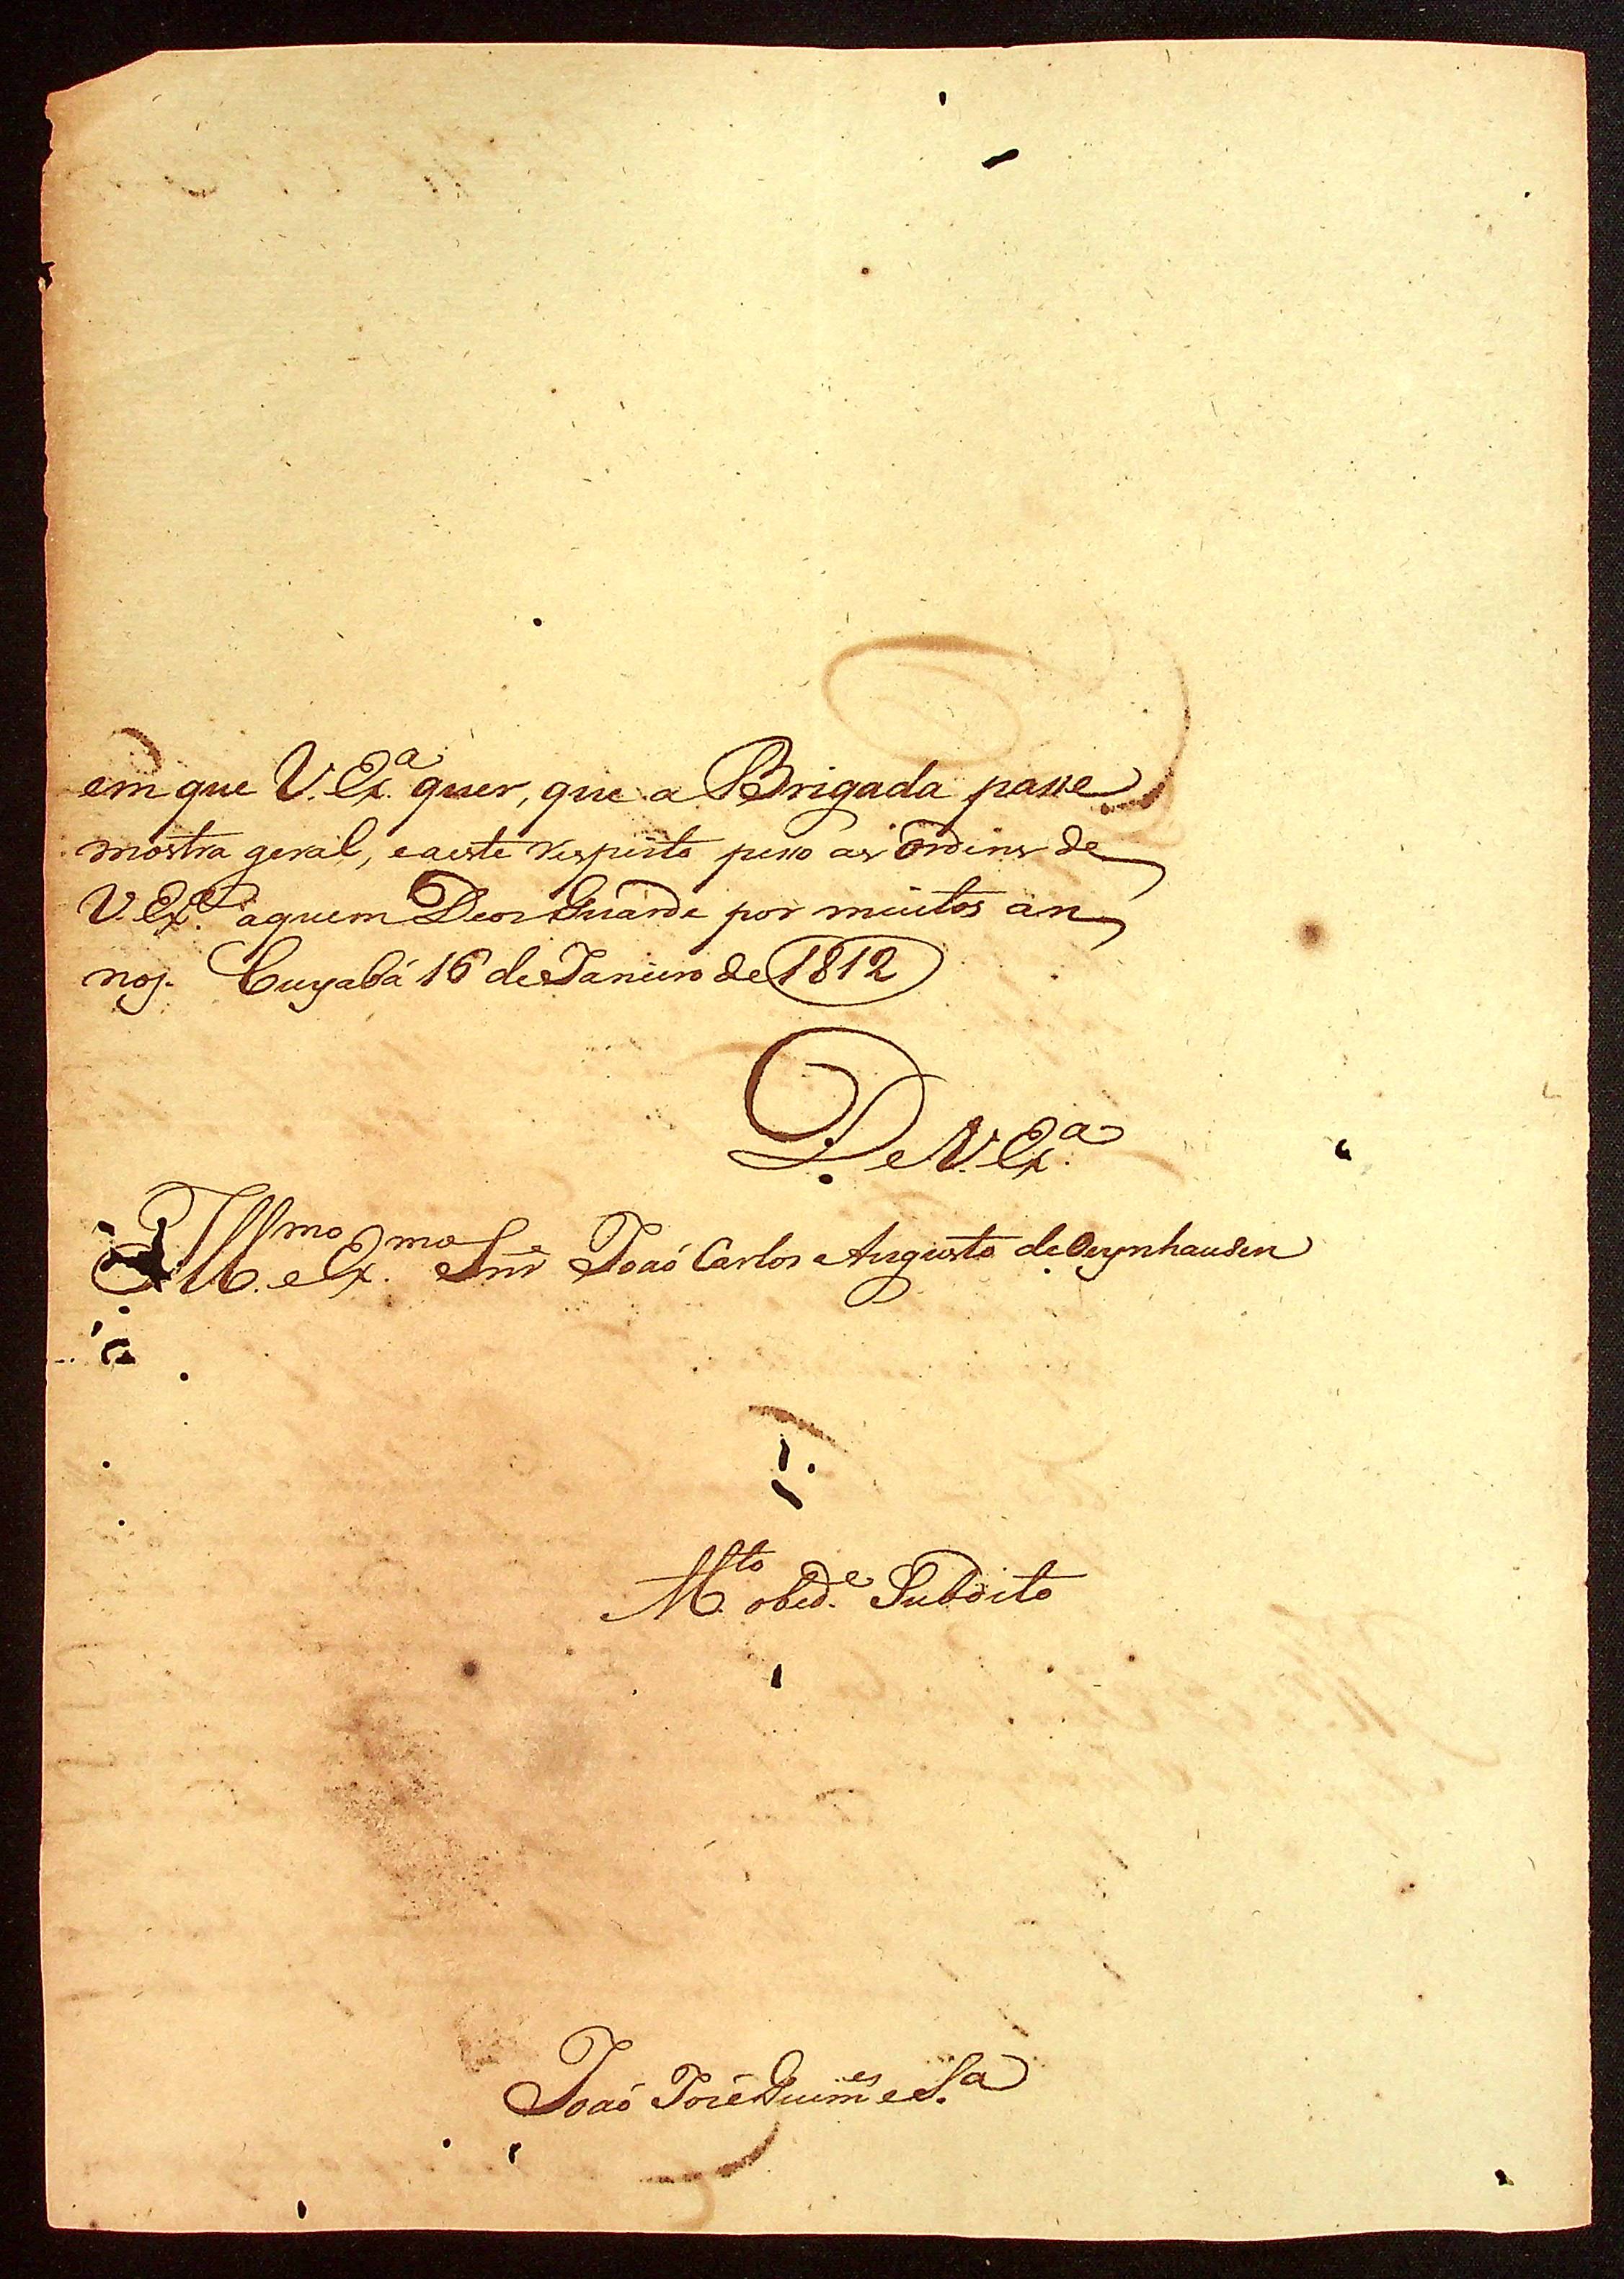 em que V. Exª. quer, que a Brigada passe
mostra geral, e a este respeito peço as Ordens de
V. Exª. a quem Deos Guarde por muitos an
nos. Cuyabá 16 de Janeiro de 1812
De V. Exª.
Illmo. e Exmo. Snr João Carlos Augusto de Oeynhausen
Mto. obede. Subdito
João José Guimes e Sa.